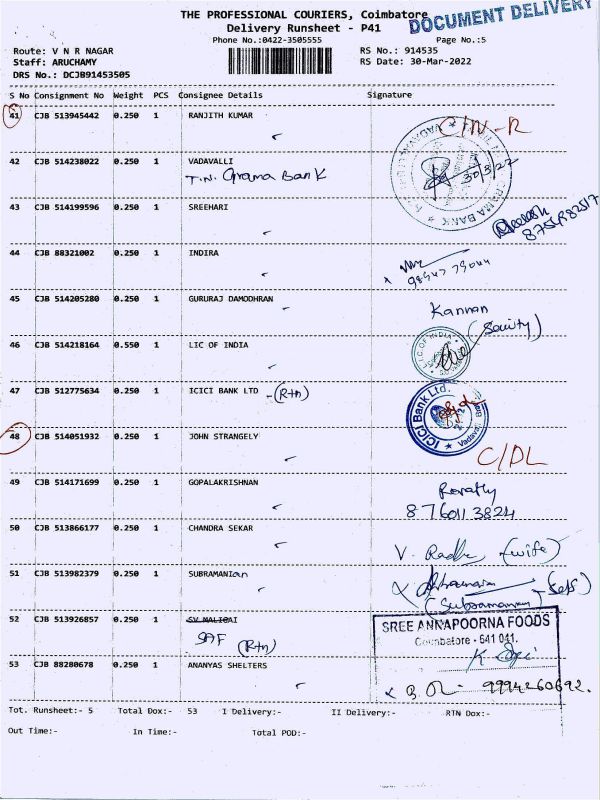 THE PROFESSIONAL COURIERS, Coimbatore
DOCUMENT DELIVERY
Delivery Runsheet - P41
Phone No.:0422-3505555
Page No.:5
Route: V N R NAGAR
RS No.: 914535
Staff: ARUCHAMY
RS Date: 30-Mar-2022
DRS No.: DCJB91453505
S No Consignment No Weight PCS Consignee Details Signature
41 CJB 513945442 0.250 1 RANJITH KUMAR
42 CJB 514238022 0.250 1 VADAVALLI
T.N. Grama Bank
30/3/22
GRAMA BANK
43 CJB 514199596 0.250 1 SREEHARI
44 CJB 88321002 0.250 1 INDIRA
45 CJB 514205280 0.250 1 GURURAJ DAMODHRAN
Kannan
46 CJB 514218164 0.550 1 LIC OF INDIA
L.I.C. OF INDIA
47 CJB 512775634 0.250 1 ICICI BANK LTD -(Rtn)
ICICI Bank Ltd.
48 CJB 514051932 0.250 1 JOHN STRANGELY
C/DL
49 CJB 514171699 0.250 1 GOPALAKRISHNAN
Revathy
8760113824
50 CJB 513866177 0.250 1 CHANDRA SEKAR
V. Radha (wife)
51 CJB 513982379 0.250 1 SUBRAMANIan
(self)
(Subramanian)
52 CJB 513926857 0.250 1 SV MALIGAI
SAF (Rtn)
SREE ANNAPOORNA FOODS
Coimbatore - 641 041.
53 CJB 88280678 0.250 1 ANANYAS SHELTERS
9994260692.
Tot. Runsheet:- 5 Total Dox:- 53 I Delivery:- II Delivery:- RTN Dox:-
Out Time:- In Time:- Total POD:-